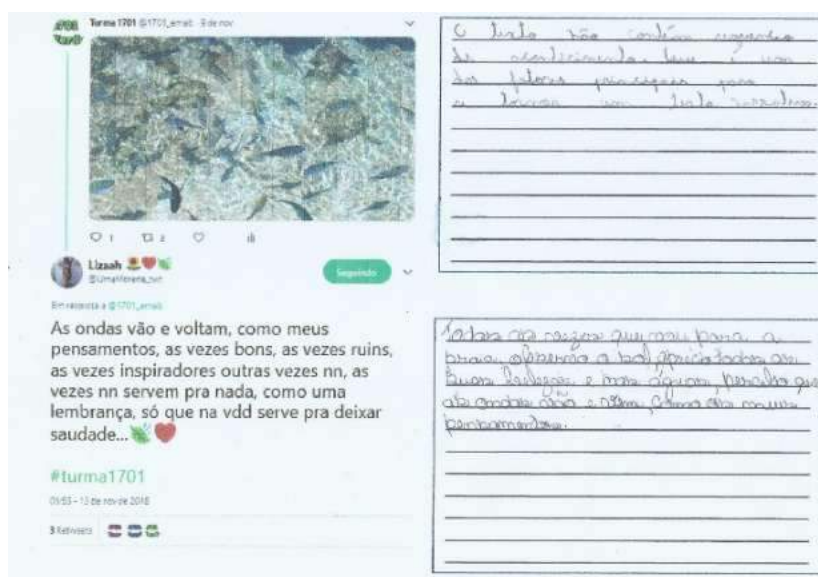 Turma 1701 @1701_emab · 9 de nov
1 2
Lizaah
@UmaMorena_
Seguindo
Em resposta a @1701_emab
As ondas vão e voltam, como meus
pensamentos, as vezes bons, as vezes ruins,
as vezes inspiradores outras vezes nn, as
vezes nn servem pra nada, como uma
lembrança, só que na vdd serve pra deixar
saudade...
#turma1701
13 de nov de 2018
3 Retweets
O texto não contém sequência
de acontecimento, que é um
dos fatores principais para
o tornar um texto narrativo.
Todas as vezes que vou para a
praia, observo o sol, aprecio todas as
suas belezas e nas águas, percebo que
as ondas vão e vem, como os meus
pensamentos.